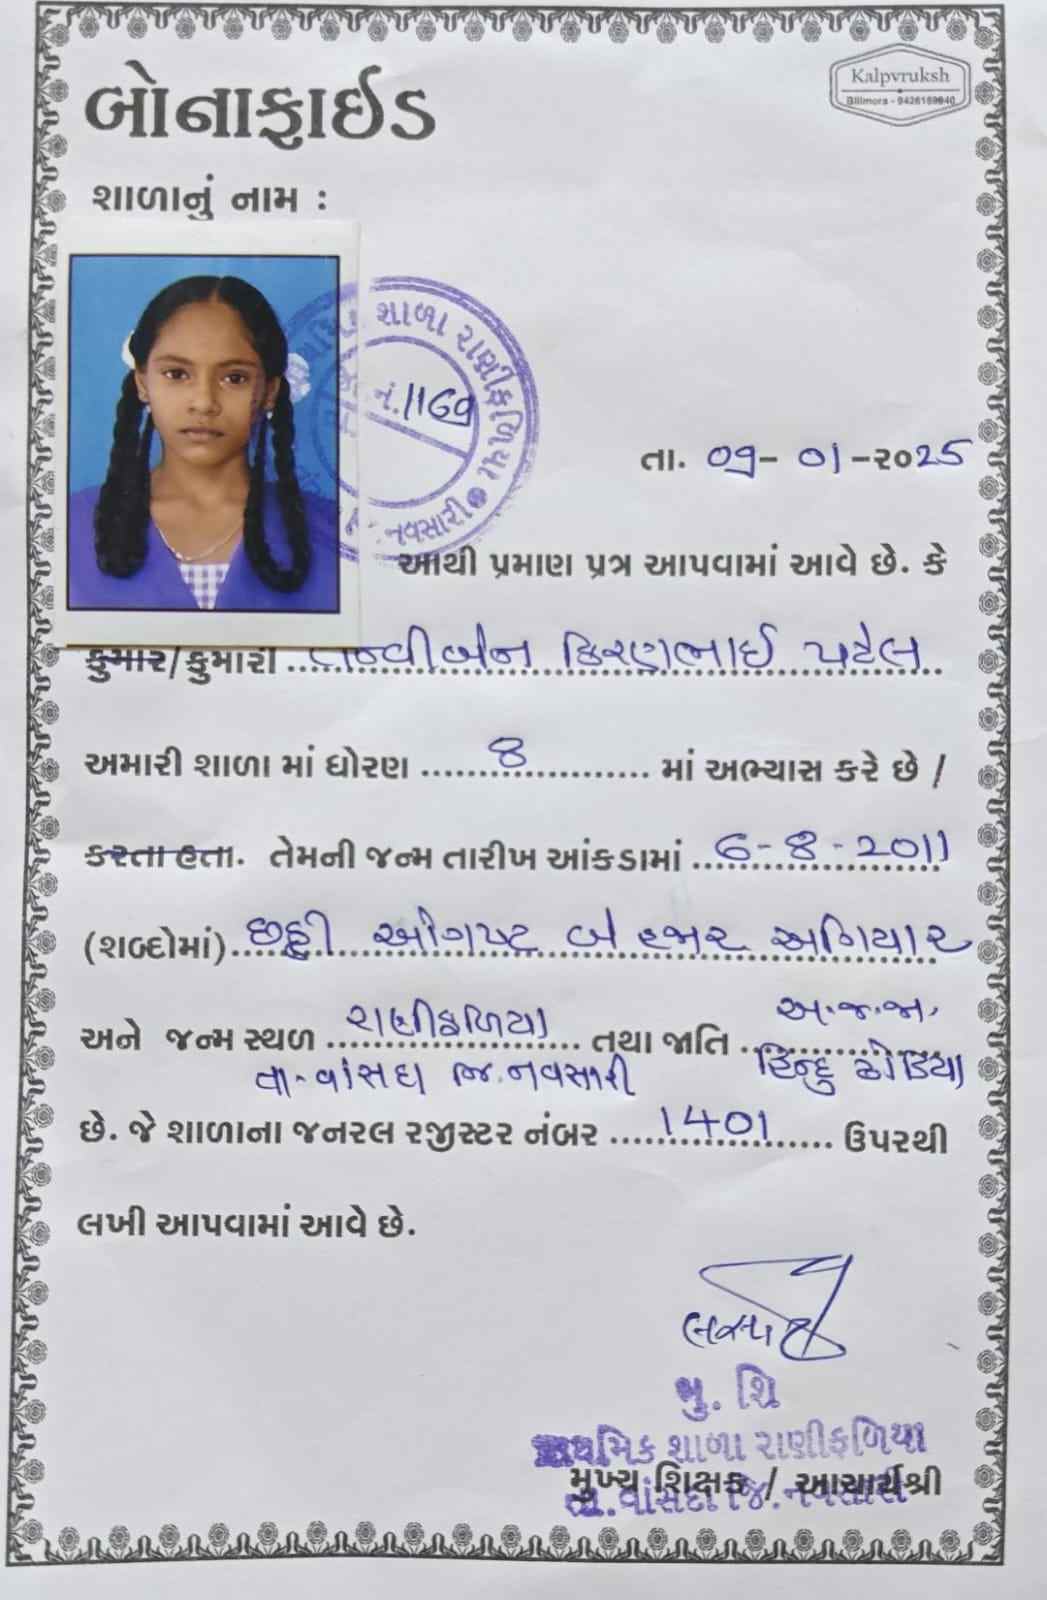 Kalpvruksh
Billmora - 9426189940
બોનાફાઈડ
શાળાનું નામ :
શાળા રાણીફળિયા
નં. 1169
નવસારી
તા. 09-01-૨૦25
આથી પ્રમાણ પત્ર આપવામાં આવે છે. કે
કુમાર/કુમારી કિરણભાઈ પટેલ
અમારી શાળા માં ધોરણ 8 માં અભ્યાસ કરે છે /
કરતા હતા. તેમની જન્મ તારીખ આંકડામાં 6-8-2011
(શબ્દોમાં) છઠ્ઠી ઓગષ્ટ બે હજાર અગિયાર
અને જન્મ સ્થળ રાણીફળિયા તથા જાતિ અ.જ.જા.
તા-વાંસદા જી.નવસારી હિન્દુ ઢોડિયા
છે. જે શાળાના જનરલ રજીસ્ટર નંબર 1401 ઉપરથી
લખી આપવામાં આવે છે.
મુ. શિ
પ્રાથમિક શાળા રાણીફળિયા
મુખ્ય શિક્ષક / આચાર્યશ્રી
તા.વાંસદા જિ.નવસારી